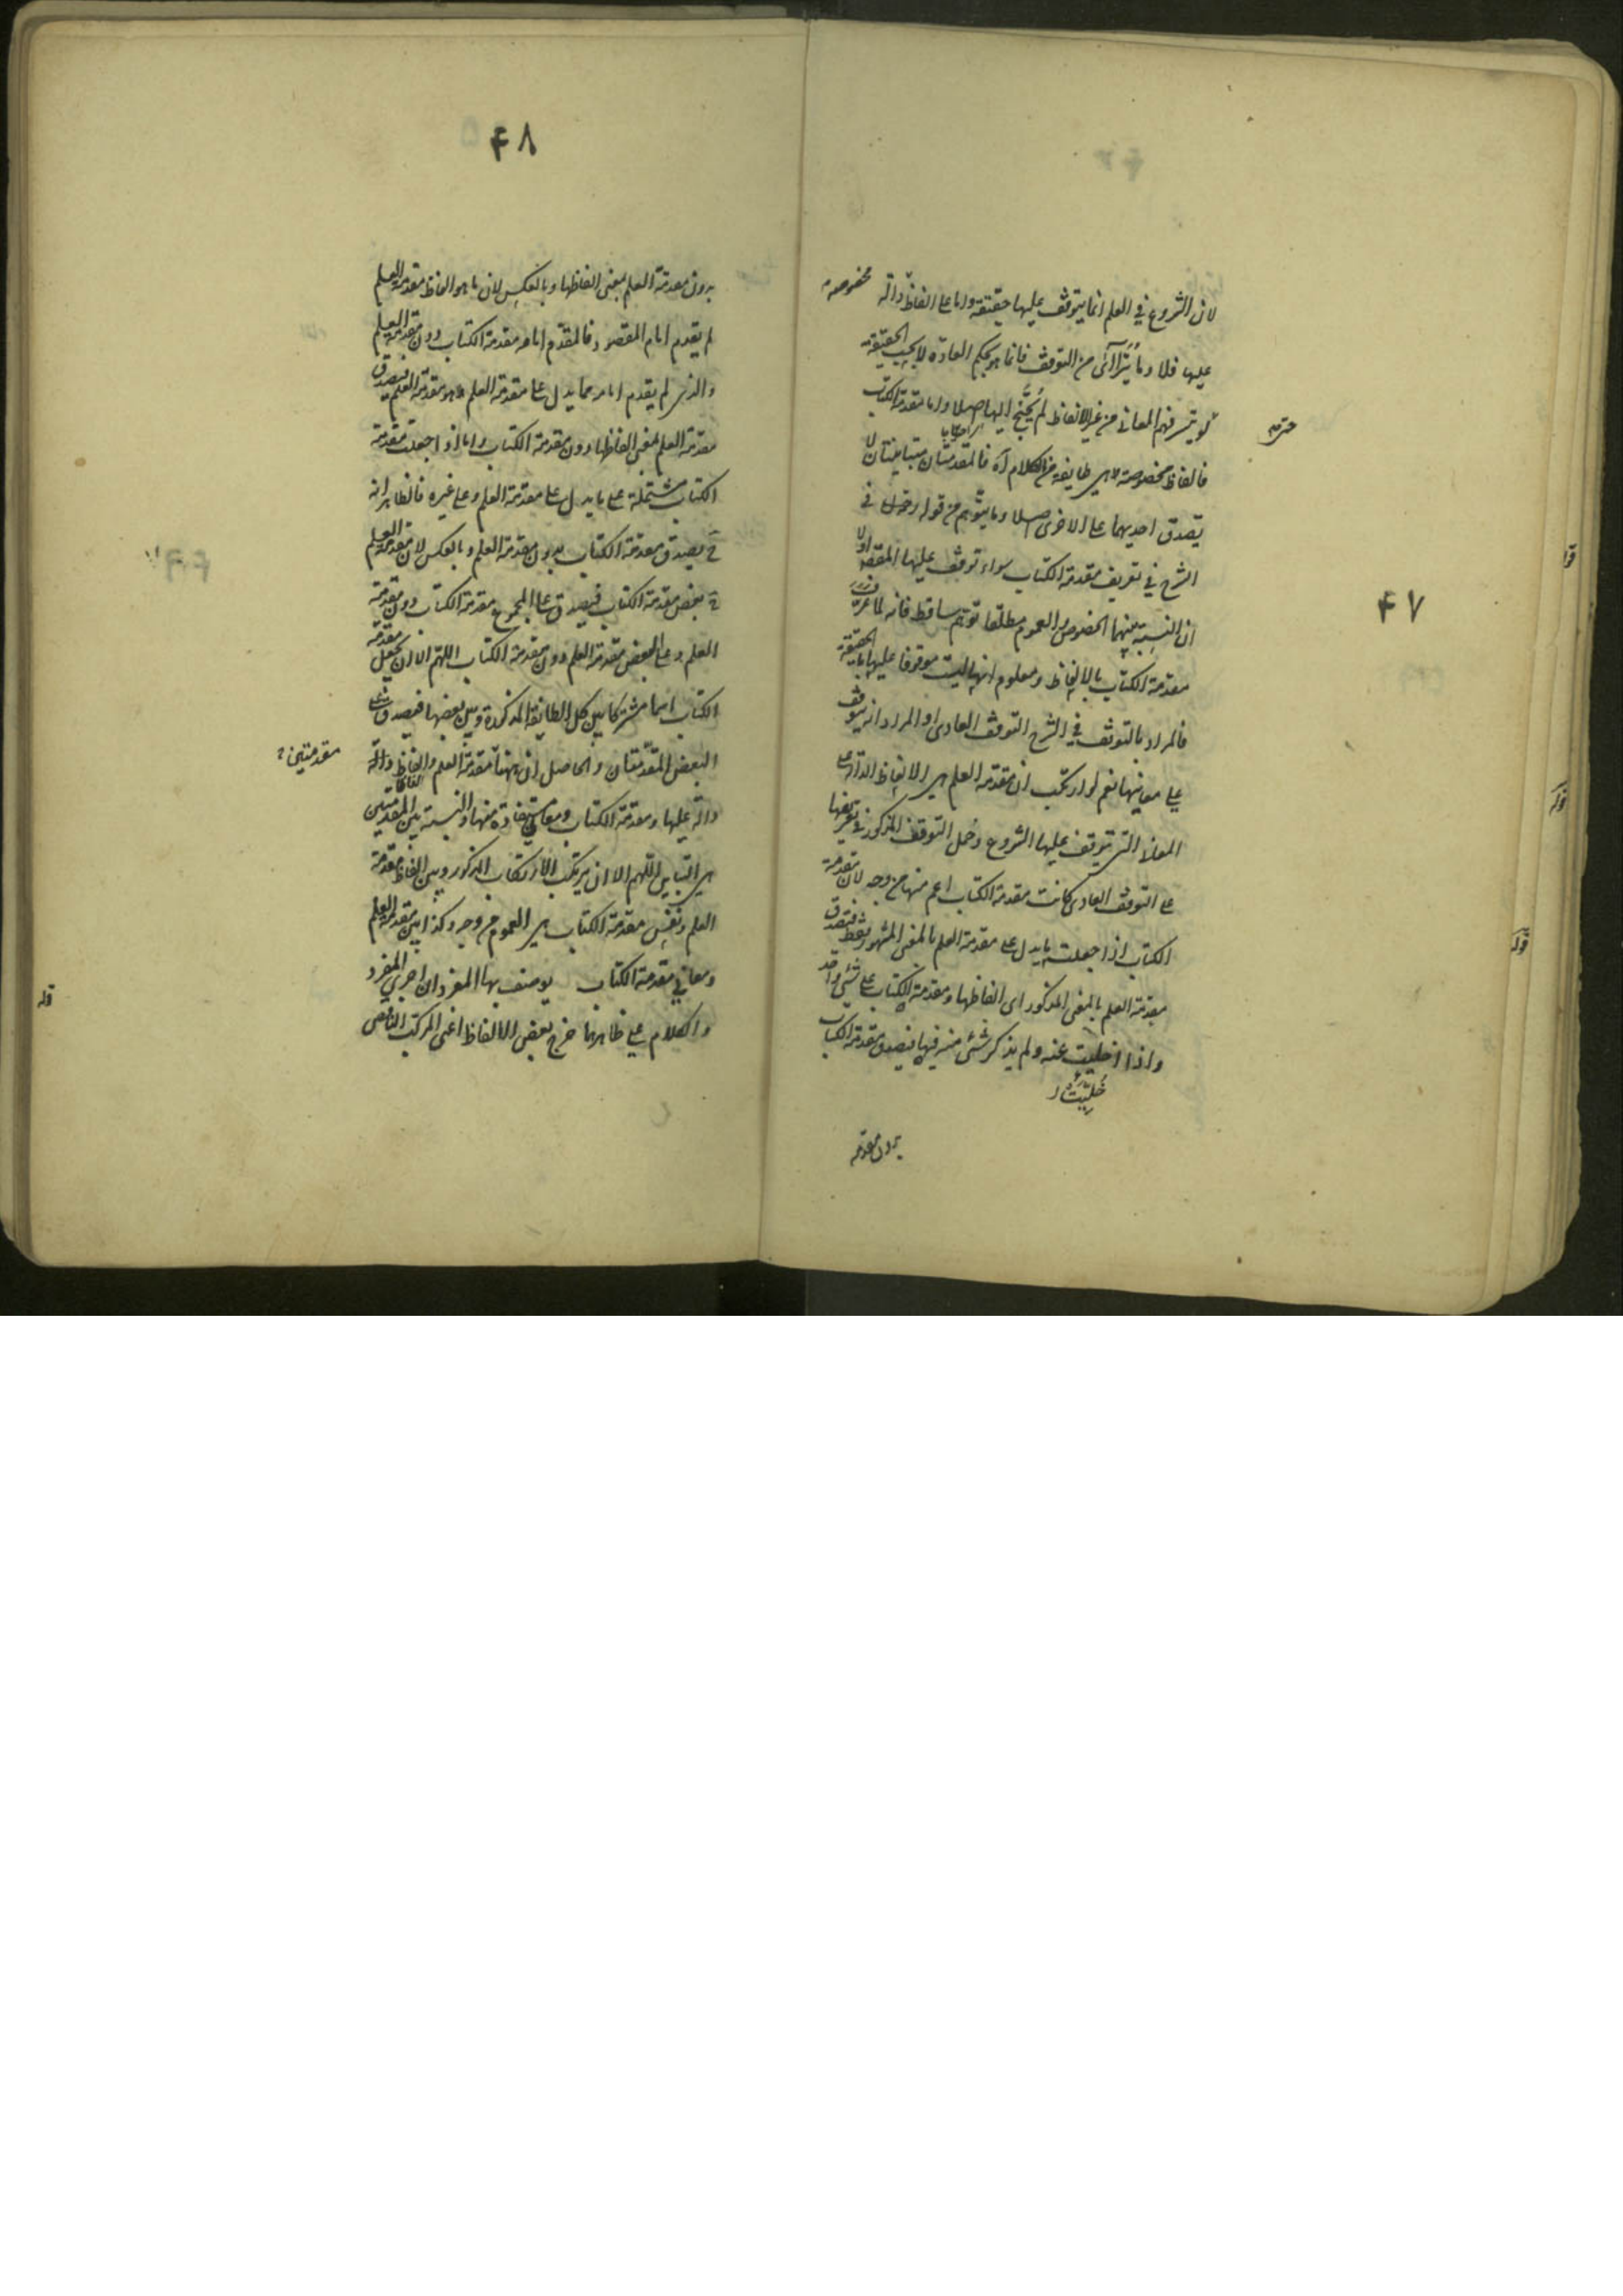 ۴۷
لان الشروع في العلم انما يتوقف عليها حقيقة واما على الفاظ دالة مخصوصة
عليها فلا وما يتراآى من التوقف فانما هو بحكم العادة لا بحسب الحقيقة
لو تيسر فهم المعاني من غير الالفاظ لم يحتج اليها اصلا واما مقدمة الكتاب
فالفاظ مخصوصة لا هي طايفة من الكلام آه فالمقدمتان متباينتان لا
يصدق احديهما على الاخرى اصلا وما يتوهم من قوله في
الشرح في تعريف مقدمة الكتاب سواء توقف عليها المقصود او لا
ان النسبة بينهما الخصوص والعموم مطلقا توهم ساقط فانه لما عرف
مقدمة الكتاب بالالفاظ ومعلوم انها ليست موقوفا عليها بالحقيقة
فالمراد بالتوقف في الشرح التوقف العادي او المراد انه يتوقف
على معانيها نعم لو ارتكب ان مقدمة العلم هي الالفاظ الدالة على
المعاني التي يتوقف عليها الشروع وحمل التوقف المذكور في تعريفها
على التوقف العادي كانت مقدمة الكتاب اعم منها من وجه لان مقدمة
الكتاب اذا جعلت ما يدل على مقدمة العلم بالمعنى المشهور فقط فتصدق
مقدمة العلم بالمعنى المذكور اى الفاظها ومقدمة الكتاب على شئ واحد
واذا اخليت عنه ولم يذكر شئ منه فيها فيصدق مقدمة الكتاب
خُلِيَتْ
بدون مقدمة
۴۸
بدون مقدمة العلم بمعنى الفاظها وبالعكس لان ما هو الفاظ مقدمة العلم
لم يقدم امام المقصود فالمقدم امامه مقدمة الكتاب دون مقدمة العلم
والذي لم يقدم امامه مما يدل على مقدمة العلم هو مقدمة العلم فيصدق
مقدمة العلم بمعنى الفاظها دون مقدمة الكتاب واما اذا جعلت مقدمة
الكتاب مشتملة على ما يدل على مقدمة العلم وعلى غيره فالظاهر انه
ح يصدق مقدمة الكتاب بدون مقدمة العلم وبالعكس لان مقدمة العلم
ح بعض مقدمة الكتاب فيصدق على المجموع مقدمة الكتاب دون مقدمة
العلم وعلى البعض مقدمة العلم دون مقدمة الكتاب اللهم الا ان يجعل مقدمة
الكتاب اسما مشتركا بين كل الطايفة المذكورة وبين بعضها فيصدق على
البعض المقدمتان والحاصل ان ههنا مقدمة العلم والفاظ دالة
دالة عليها ومقدمة الكتاب ومعاني مستفادة منها والنسبة بين المقدمتين
مقدمتين
هي التباين اللهم الا ان يرتكب الارتكاب المذكور وبين الفاظ مقدمة
العلم ونفس مقدمة الكتاب هي العموم من وجه وكذا بين مقدمة العلم
ومعاني مقدمة الكتاب يوصف بها المفرد ان اجري المفرد
والكلام على ظاهرهما خرج بعض الالفاظ اعني المركب الناقص
قوله